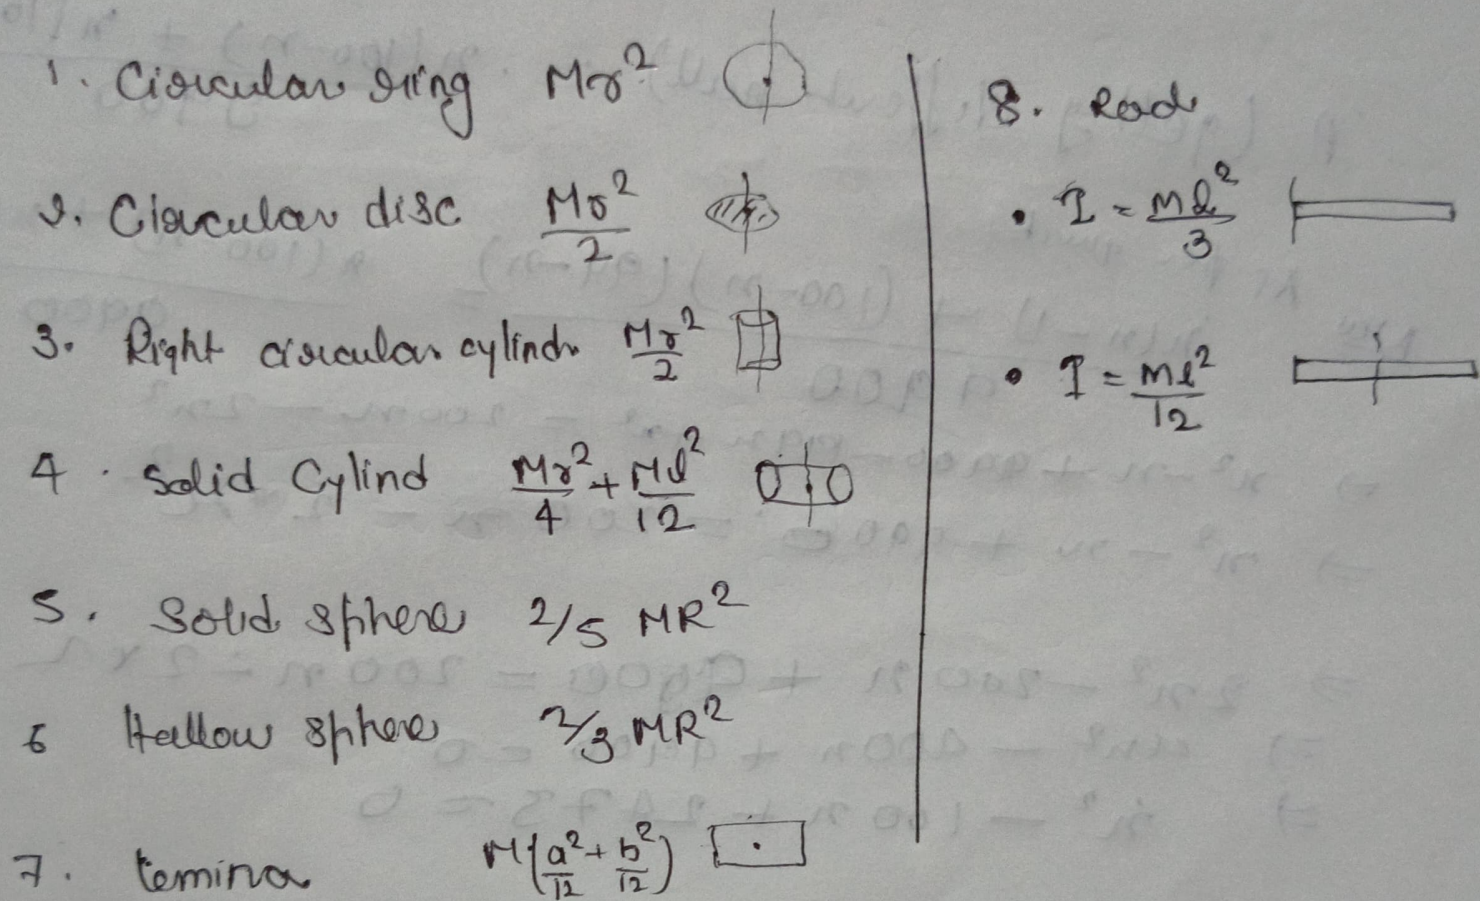 1. Circular ring Mr²
2. Circular disc Mr²/2
3. Right circular cylindr Mr²/2
4. Solid Cylind Mr²/4 + Ml²/12
5. Solid sphere 2/5 MR²
6 Hallow sphere 2/3 MR²
7. temina M(a²/12 + b²/12)
8. Rod
• I = Ml²/3
• I = Ml²/12